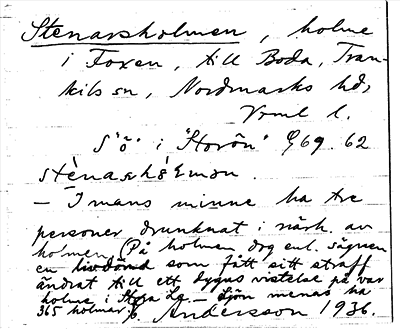 Stenarsholmen, holme
i Foxen, till Boda, Tran-
kils sn, Nordmarks hd,
Vrml l.
S "ö" i "Storön" G 69. 62
– I mans minne ha tre
personer drunknat i närh. av
holmen (På holmen dog enl. sägnen
en livdömd som fått sitt straff
ändrat till ett dygns vistelse på var
holme i – Sjön menas ha
365 holmar. Andersson 1936.